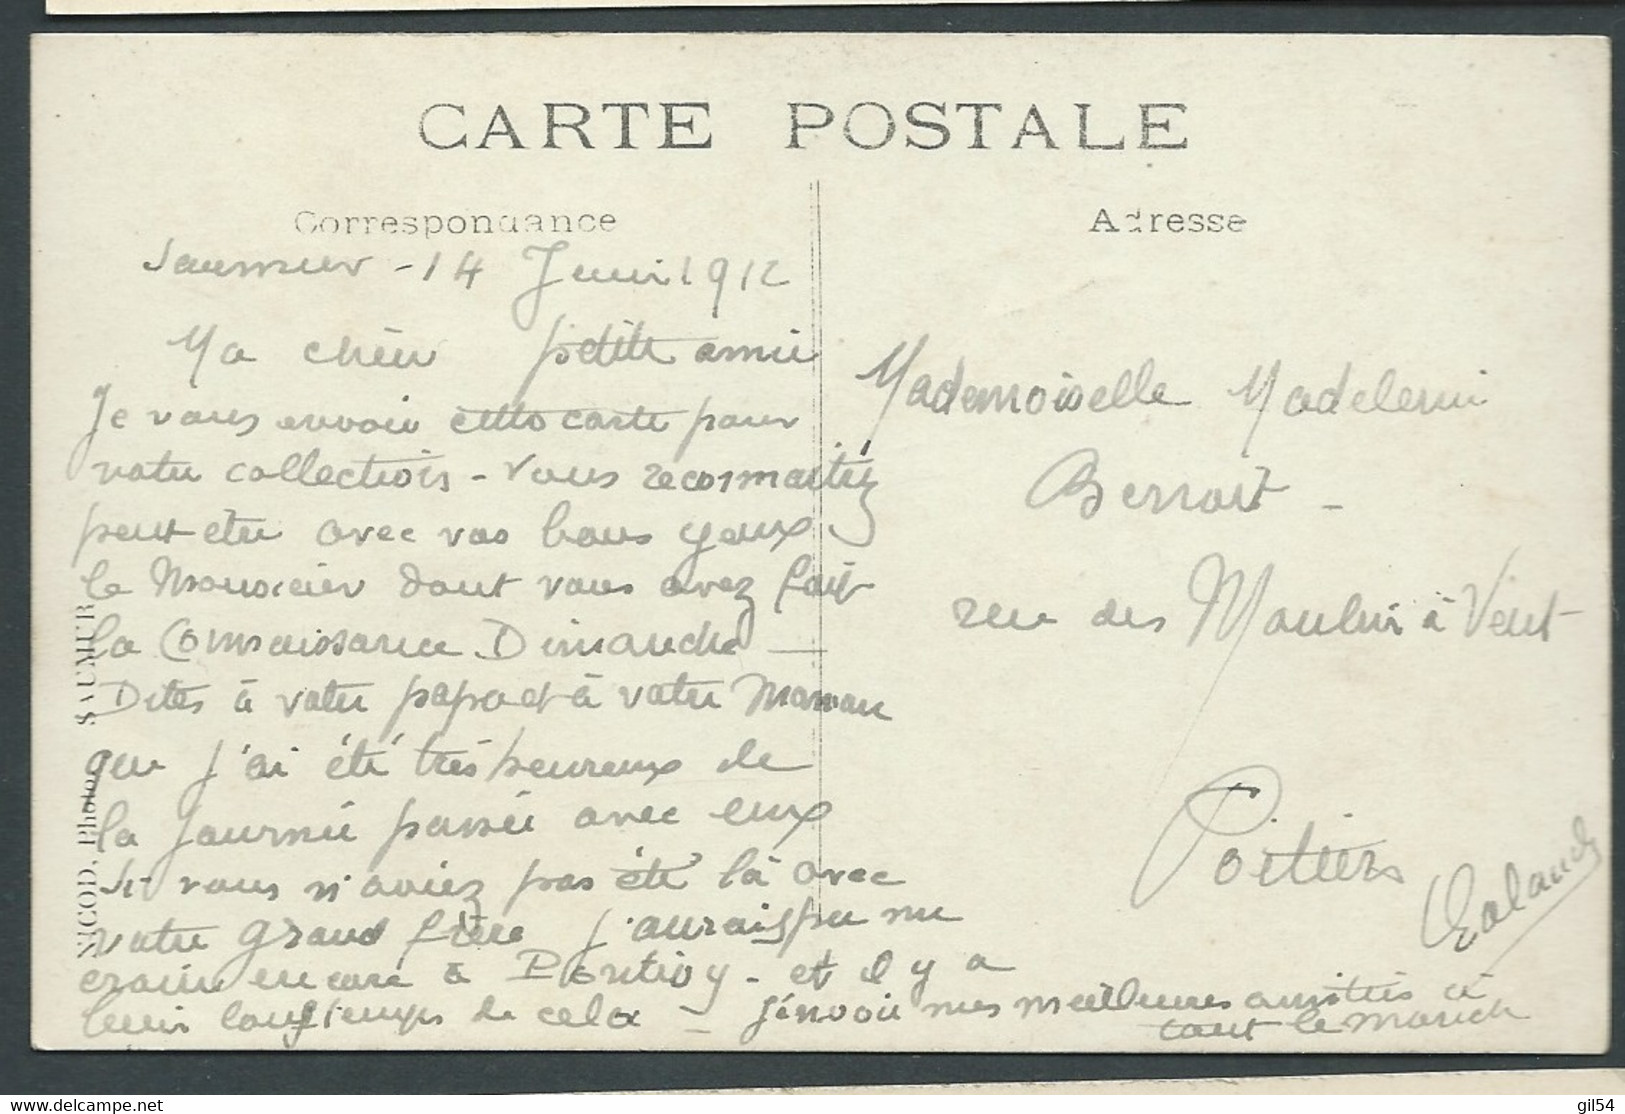 CARTE POSTALE
Correspondance
Adresse
Saumur - 14 Juin 1912
Ma chère petite amie
Je vous envoie cette carte pour
votre collection - Vous reconnaitrez
peut être avec vos bons yeux
le Monsieur dont vous avez fait
la Connaissance Dimanche -
Dites à votre papa et à votre Maman
que j'ai été très heureux de
la journée passée avec eux
Si vous n'aviez pas été là avec
votre grand frère j'aurais pu me
croire encore à Pontivy - et il y a
bien longtemps de cela - J'envoie mes meilleures amitiés à
tout le monde
Mademoiselle Madeleine
Benoit -
rue des Moulins à Vent
Poitiers
NICOD, Photo SAUMUR
gil54